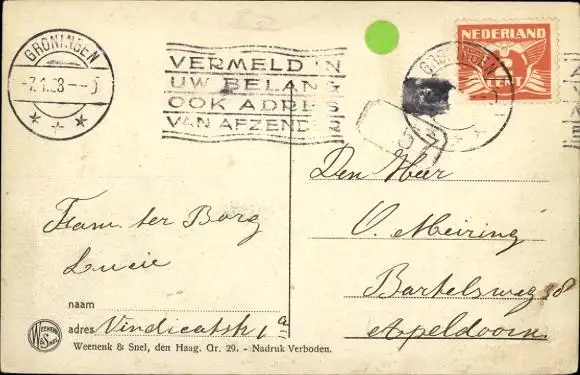 GRONINGEN
-7.1.28
VERMELD IN
UW BELANG
OOK ADRES
VAN AFZENDER
GRONINGEN
NEDERLAND
CENT
Den Heer
O. Meiring
Bartelsweg 38
Apeldoorn.
Fam. ter Borg
Lucie
naam
adres Vindicatstr 1a
WEENENK & SNEL
Weenenk & Snel, den Haag. Gr. 29. - Nadruk Verboden.